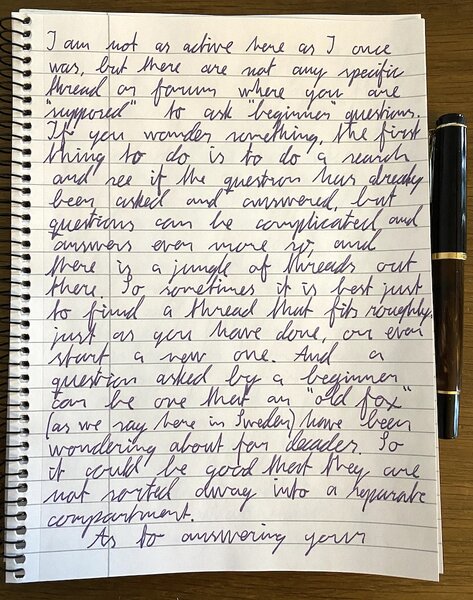 I am not as active here as I once
was, but there are not any specific
thread or forum where you are
"supposed" to ask "beginner" questions.
If you wonder something, the first
thing to do is to do a search
and see if the question has already
been asked and answered, but
questions can be complicated and
answers even more so, and
there is a jungle of threads out
there. So sometimes it is best just
to find a thread that fits roughly,
just as you have done, or even
start a new one. And a
question asked by a beginner
can be one that an "old fox"
(as we say here in Sweden) have been
wondering about for decades. So
it could be good that they are
not sorted away into a separate
compartment.
As to answering your